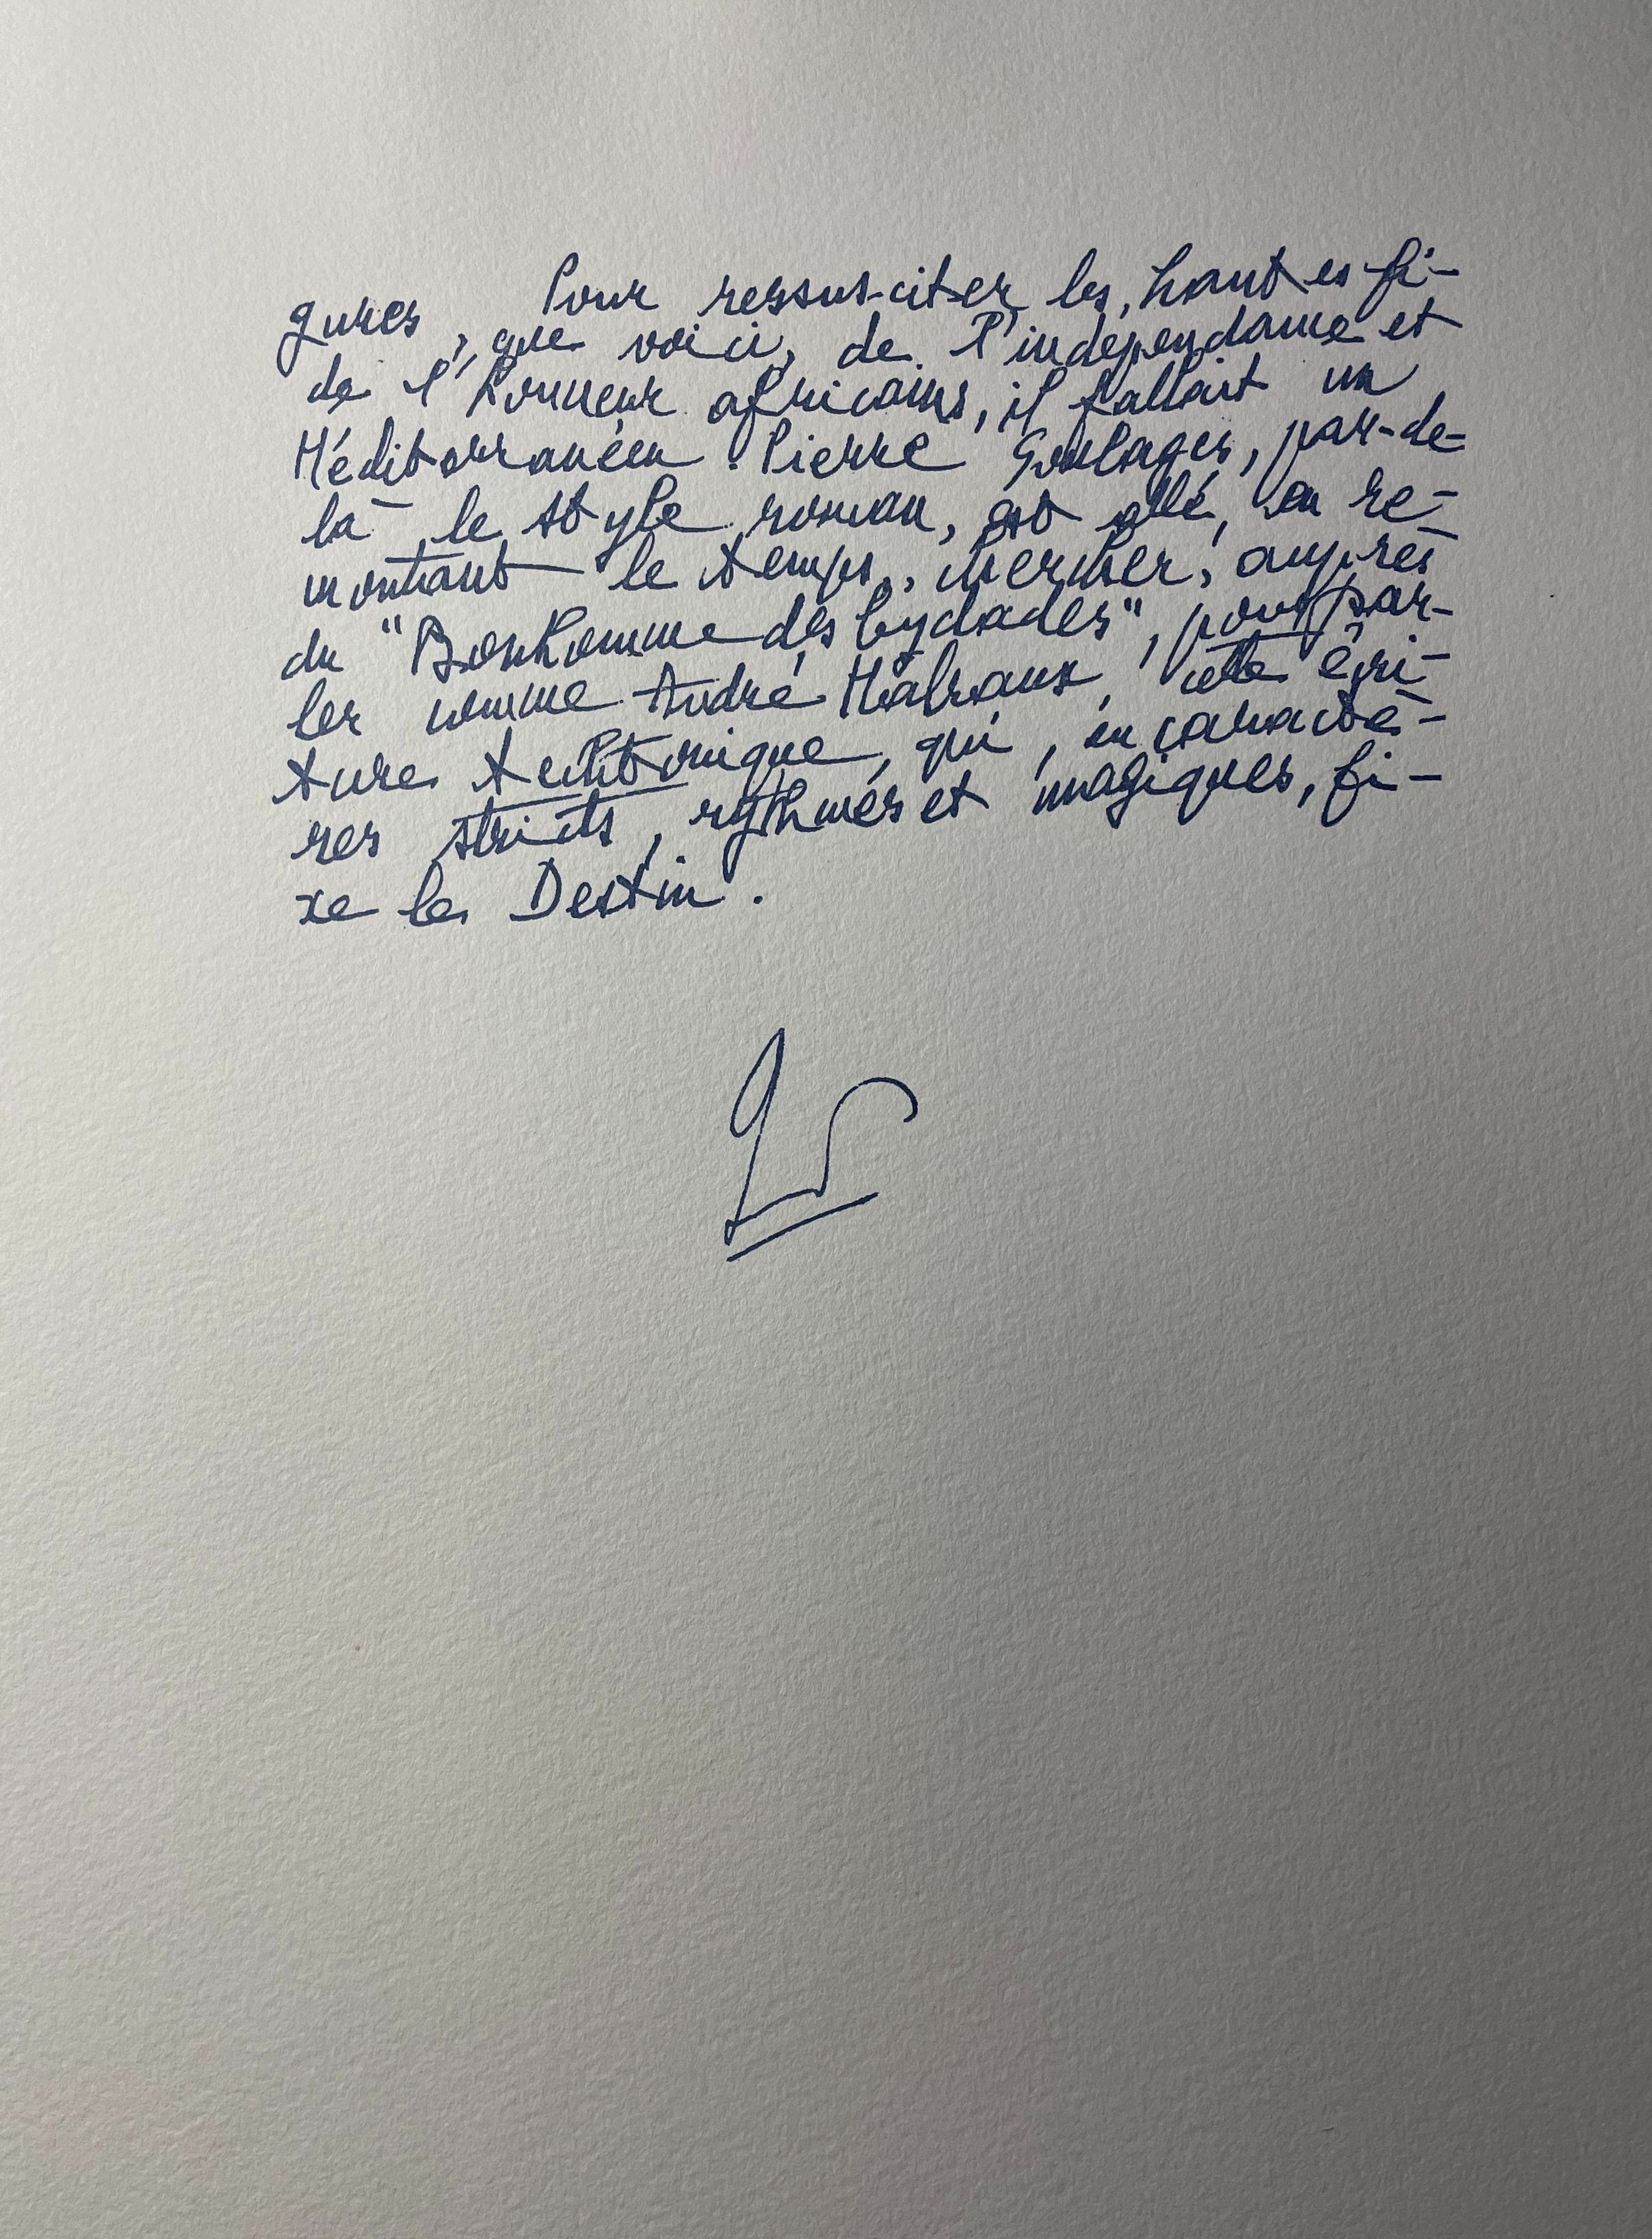 Pour ressusciter les hautes fi-
gures, que voici, de l'indépendance et
de l'honneur africains, il fallait un
Méditerranéen. Pierre Soulages, par-de-
là le style roman, est allé, en re-
montant le temps, chercher, auprès
du "Bonhomme des Cyclades", pour par-
ler comme André Malraux, cette écri-
ture technique, qui, en caractè-
res stricts, rythmés et magiques, fi-
xe le Destin.